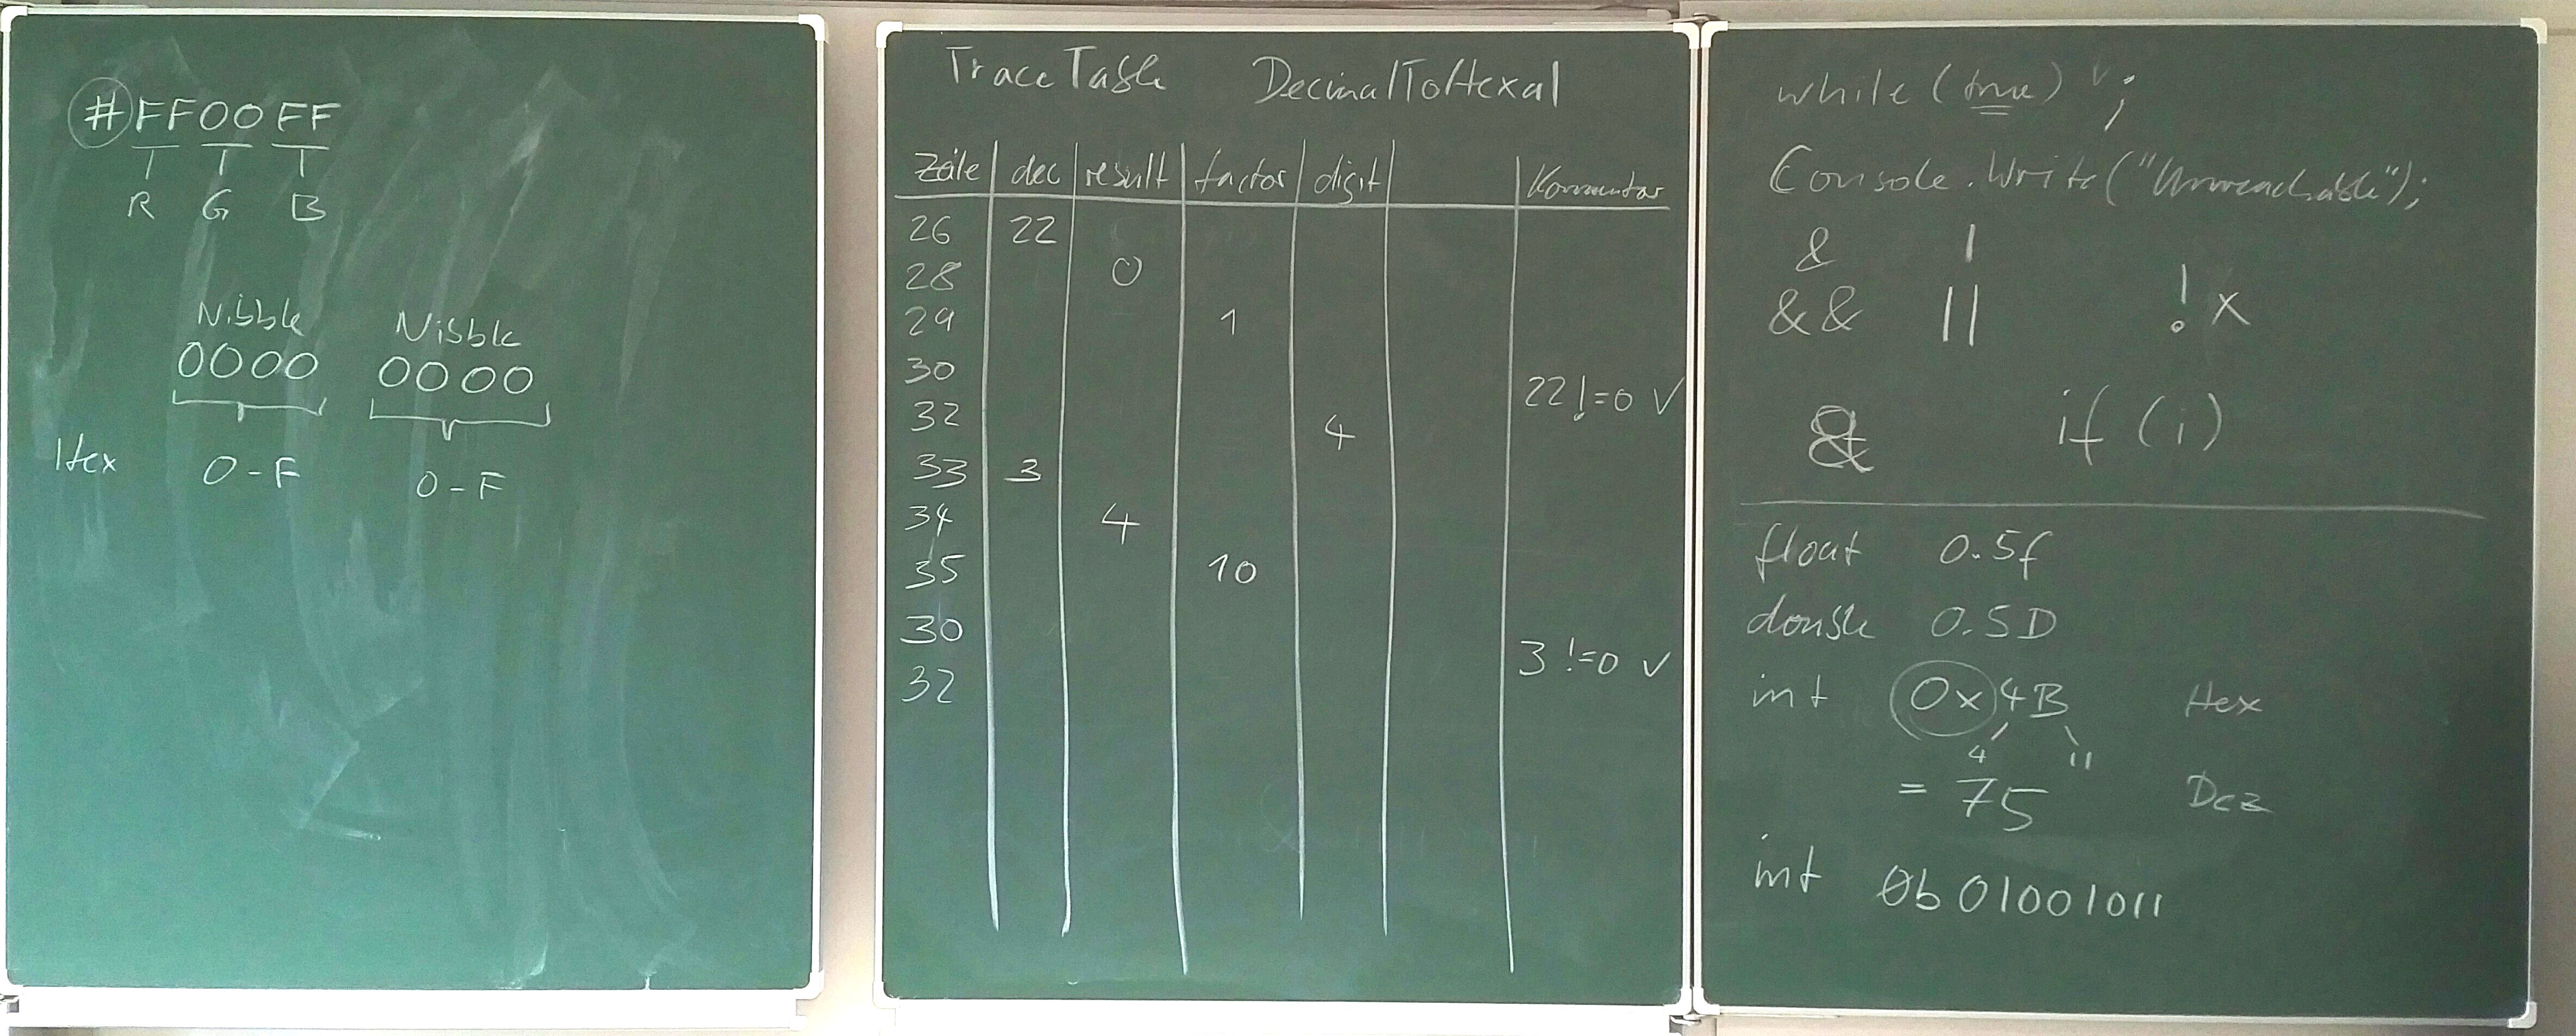 #FF00FF
R G B
Nibble Nibble
0000 0000
Hex 0-F 0-F
TraceTable DecimalToHexal
Zeile dec result factor digit Kommentar
26 22
28 0
29 1
30 22!=0 √
32 4
33 3
34 4
35 10
30 3 !=0 √
32
while (true) ;
Console.Write("Unreachable");
& |
&& || !x
& if (i)
float 0.5f
double 0.5D
int 0x4B Hex
4 11
= 75 Dez
int 0b01001011